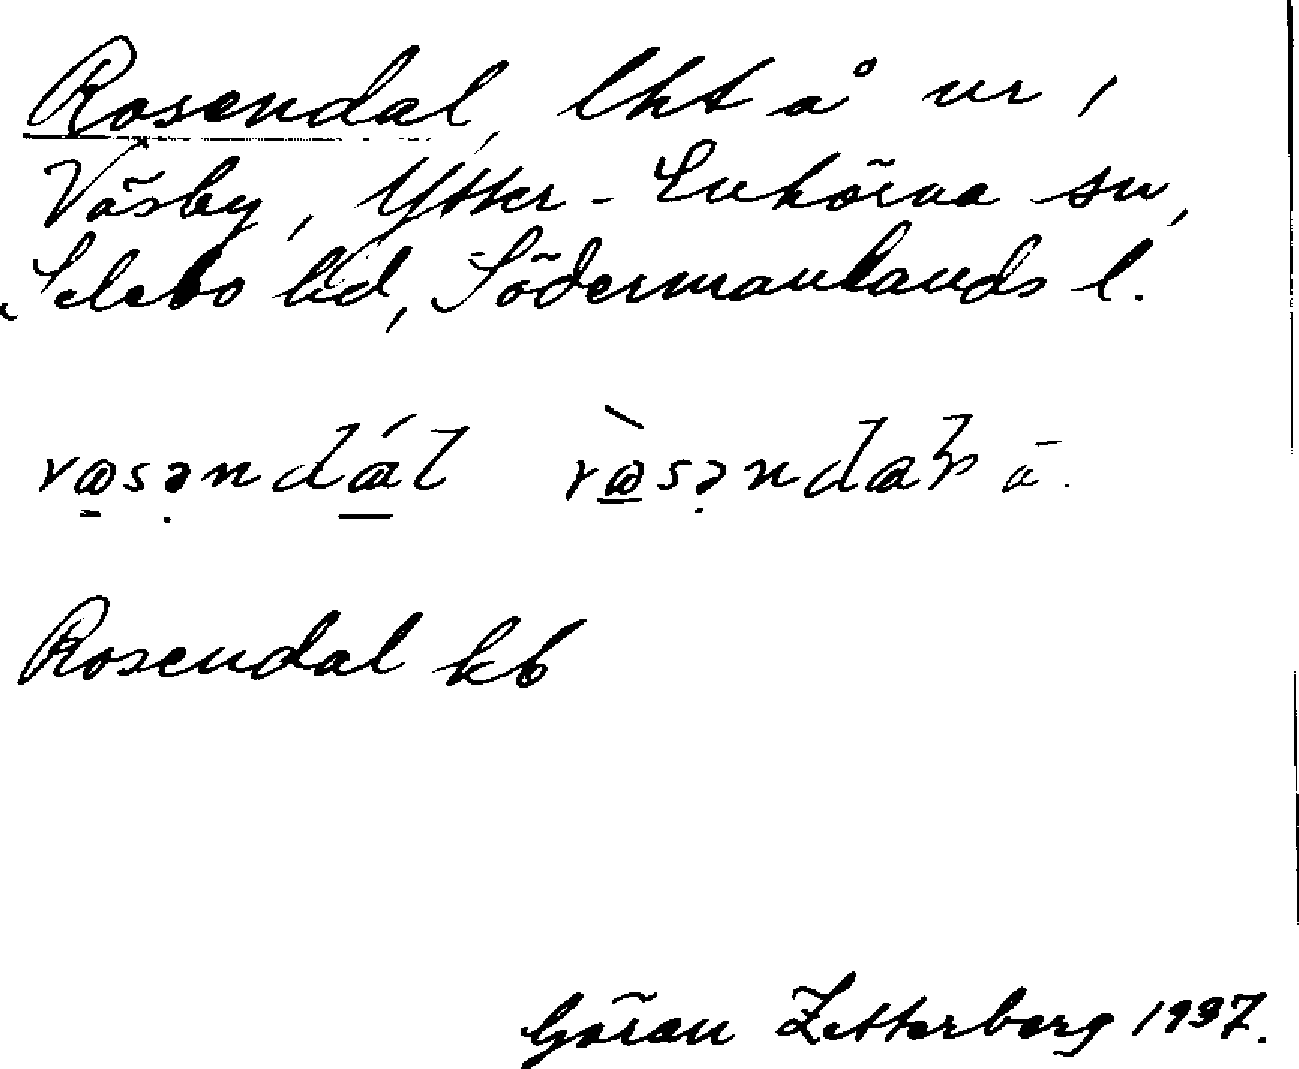 Rosendal, lht å nr 1
Väsby, Ytter-Enhörna sn,
Selebo hd, Södermanlands l.
rosəndál ròsəndal
Rosendal kb
Göran Zetterberg 1937.